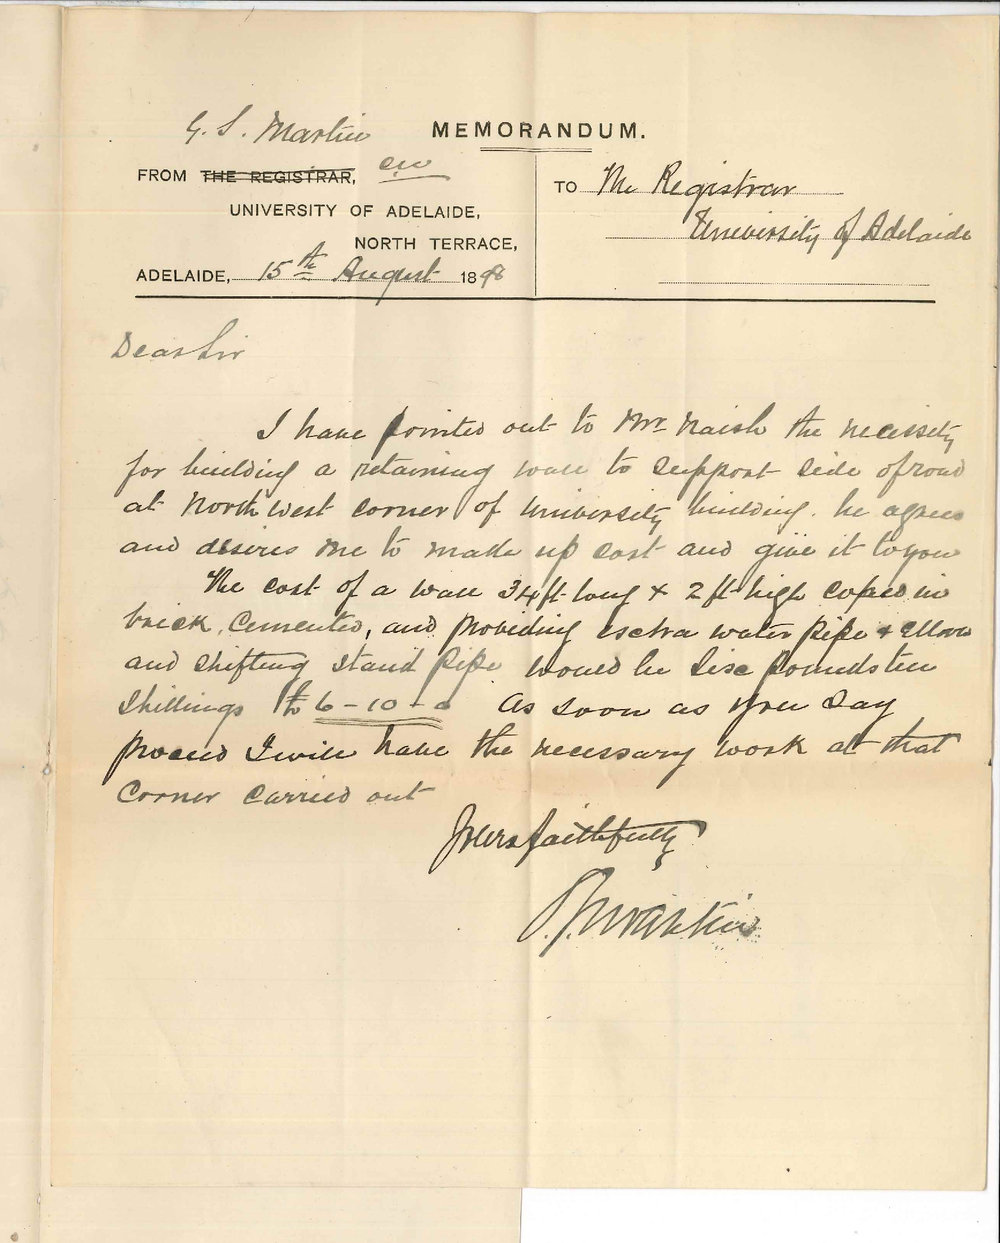 G. S. Martin
MEMORANDUM.
FROM THE REGISTRAR,
TO The Registrar
UNIVERSITY OF ADELAIDE,
University of Adelaide
NORTH TERRACE,
ADELAIDE, 15th August 1898
Dear Sir
I have pointed out to Mr. Naish the necissity
for building a retaining wall to support side of road
at North West corner of University building. he agrees
and desires me to make up cost and give it to you
The cost of a wall 34ft long & 2 ft high coped in
brick, cemented, and providing extra water pipe & Elbow
and shifting stand pipe would be Six pounds ten
shillings £6-10-0 As soon as you say
proceed I will have the necessary work at that
corner carried out
Yours faithfully
Martin